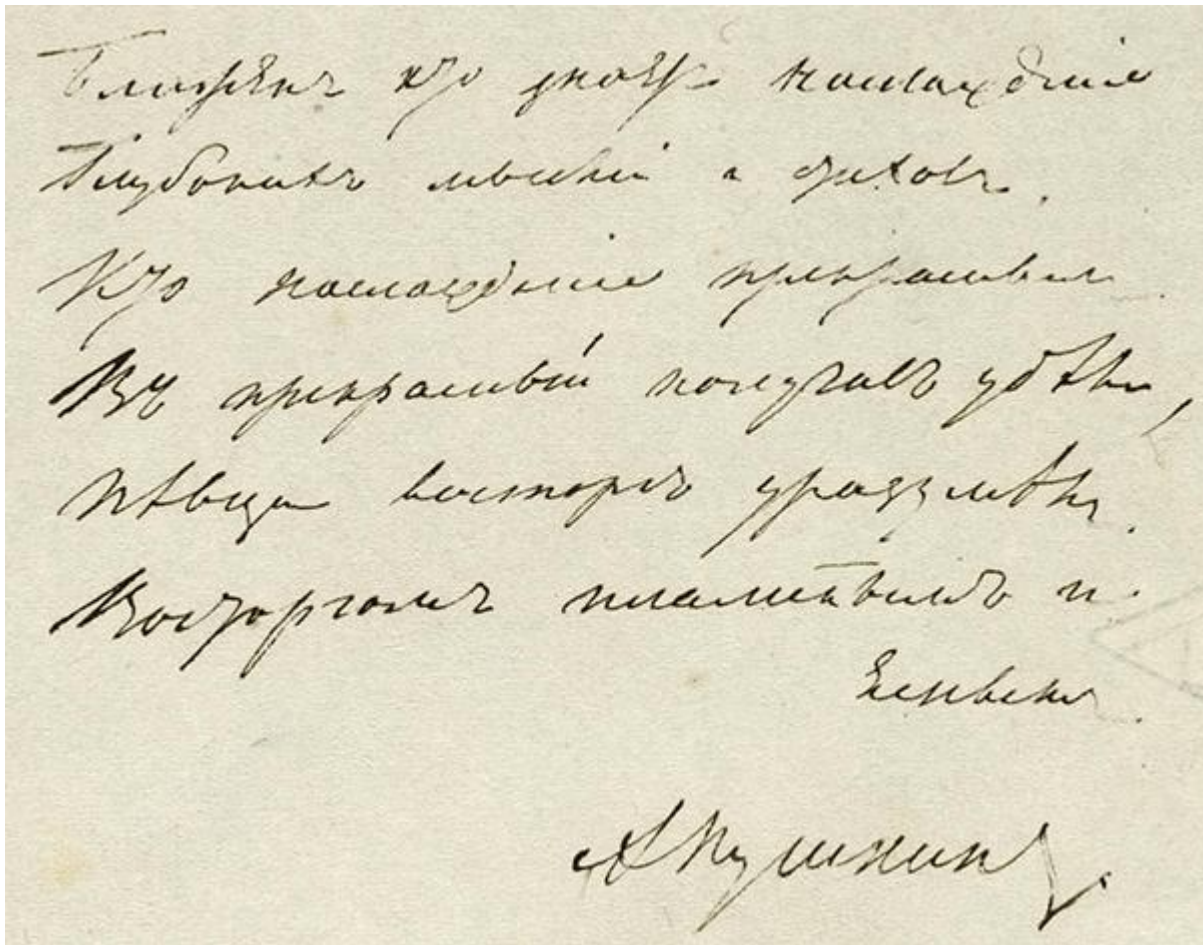 Блаженъ кто знаетъ наслажденіе
Глубокихъ мыслей и стиховъ.
Кто наслажденіе прекраснымъ
Въ прекрасный получилъ удѣлъ,
Пѣвца восторгъ уразумѣлъ
Восторгомъ пламеннымъ и
Яснымъ.
А Пушкинъ.